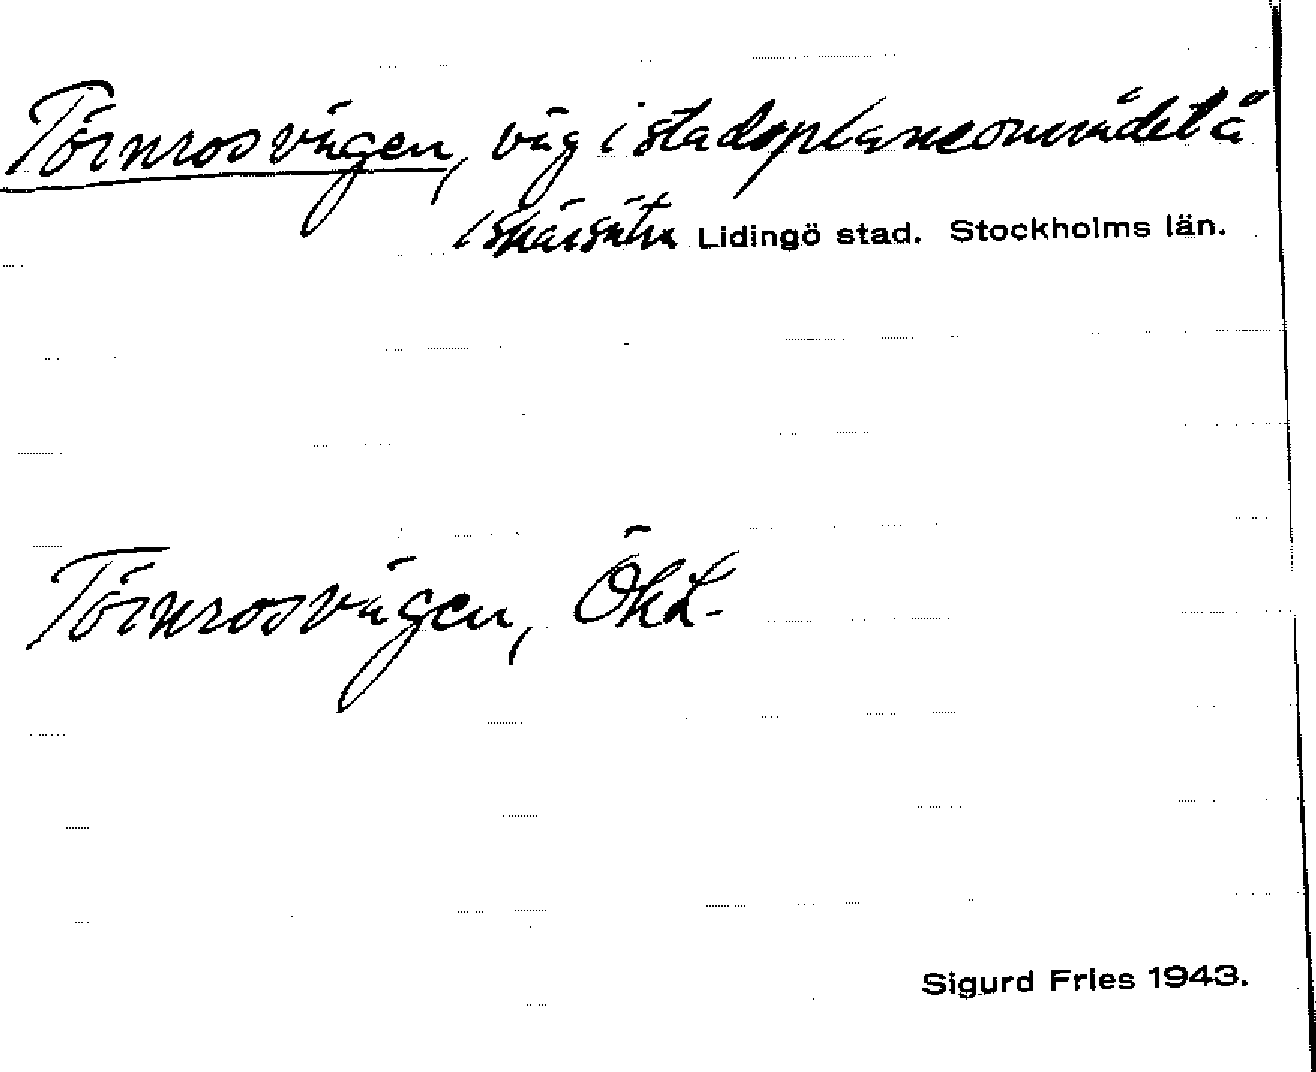 Törnrosvägen, väg i stadsplaneområdet å
Skärsätra Lidingö stad. Stockholms län.
Törnrosvägen, ÖhL.
Sigurd Fries 1943.